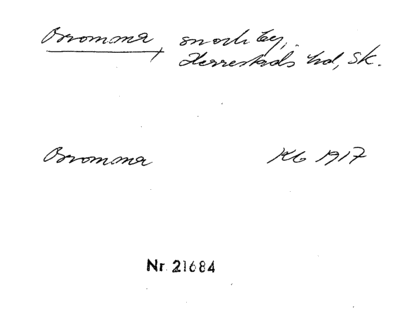 Bromma, snarby,
Herrestads hd, Sk.
Bromma KG 1917
Nr 21684